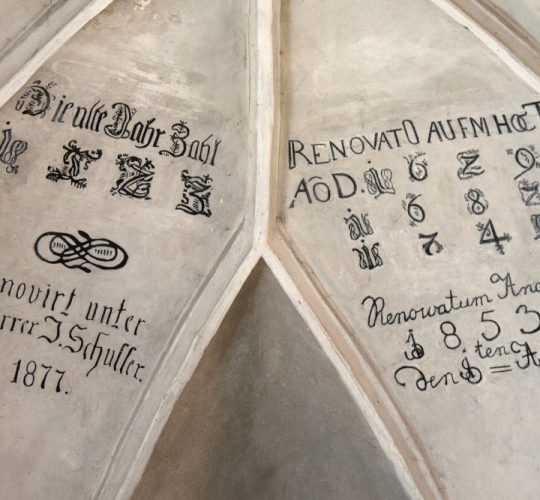 Die alte Jahr Zahl
novirt unter
rrer J. Schuller.
1877.
RENOVATO AUFM
AÕD. 1 6 2 9
1 6 8
1 7 4
Renowatum
1 8 5 3
den 1 ten